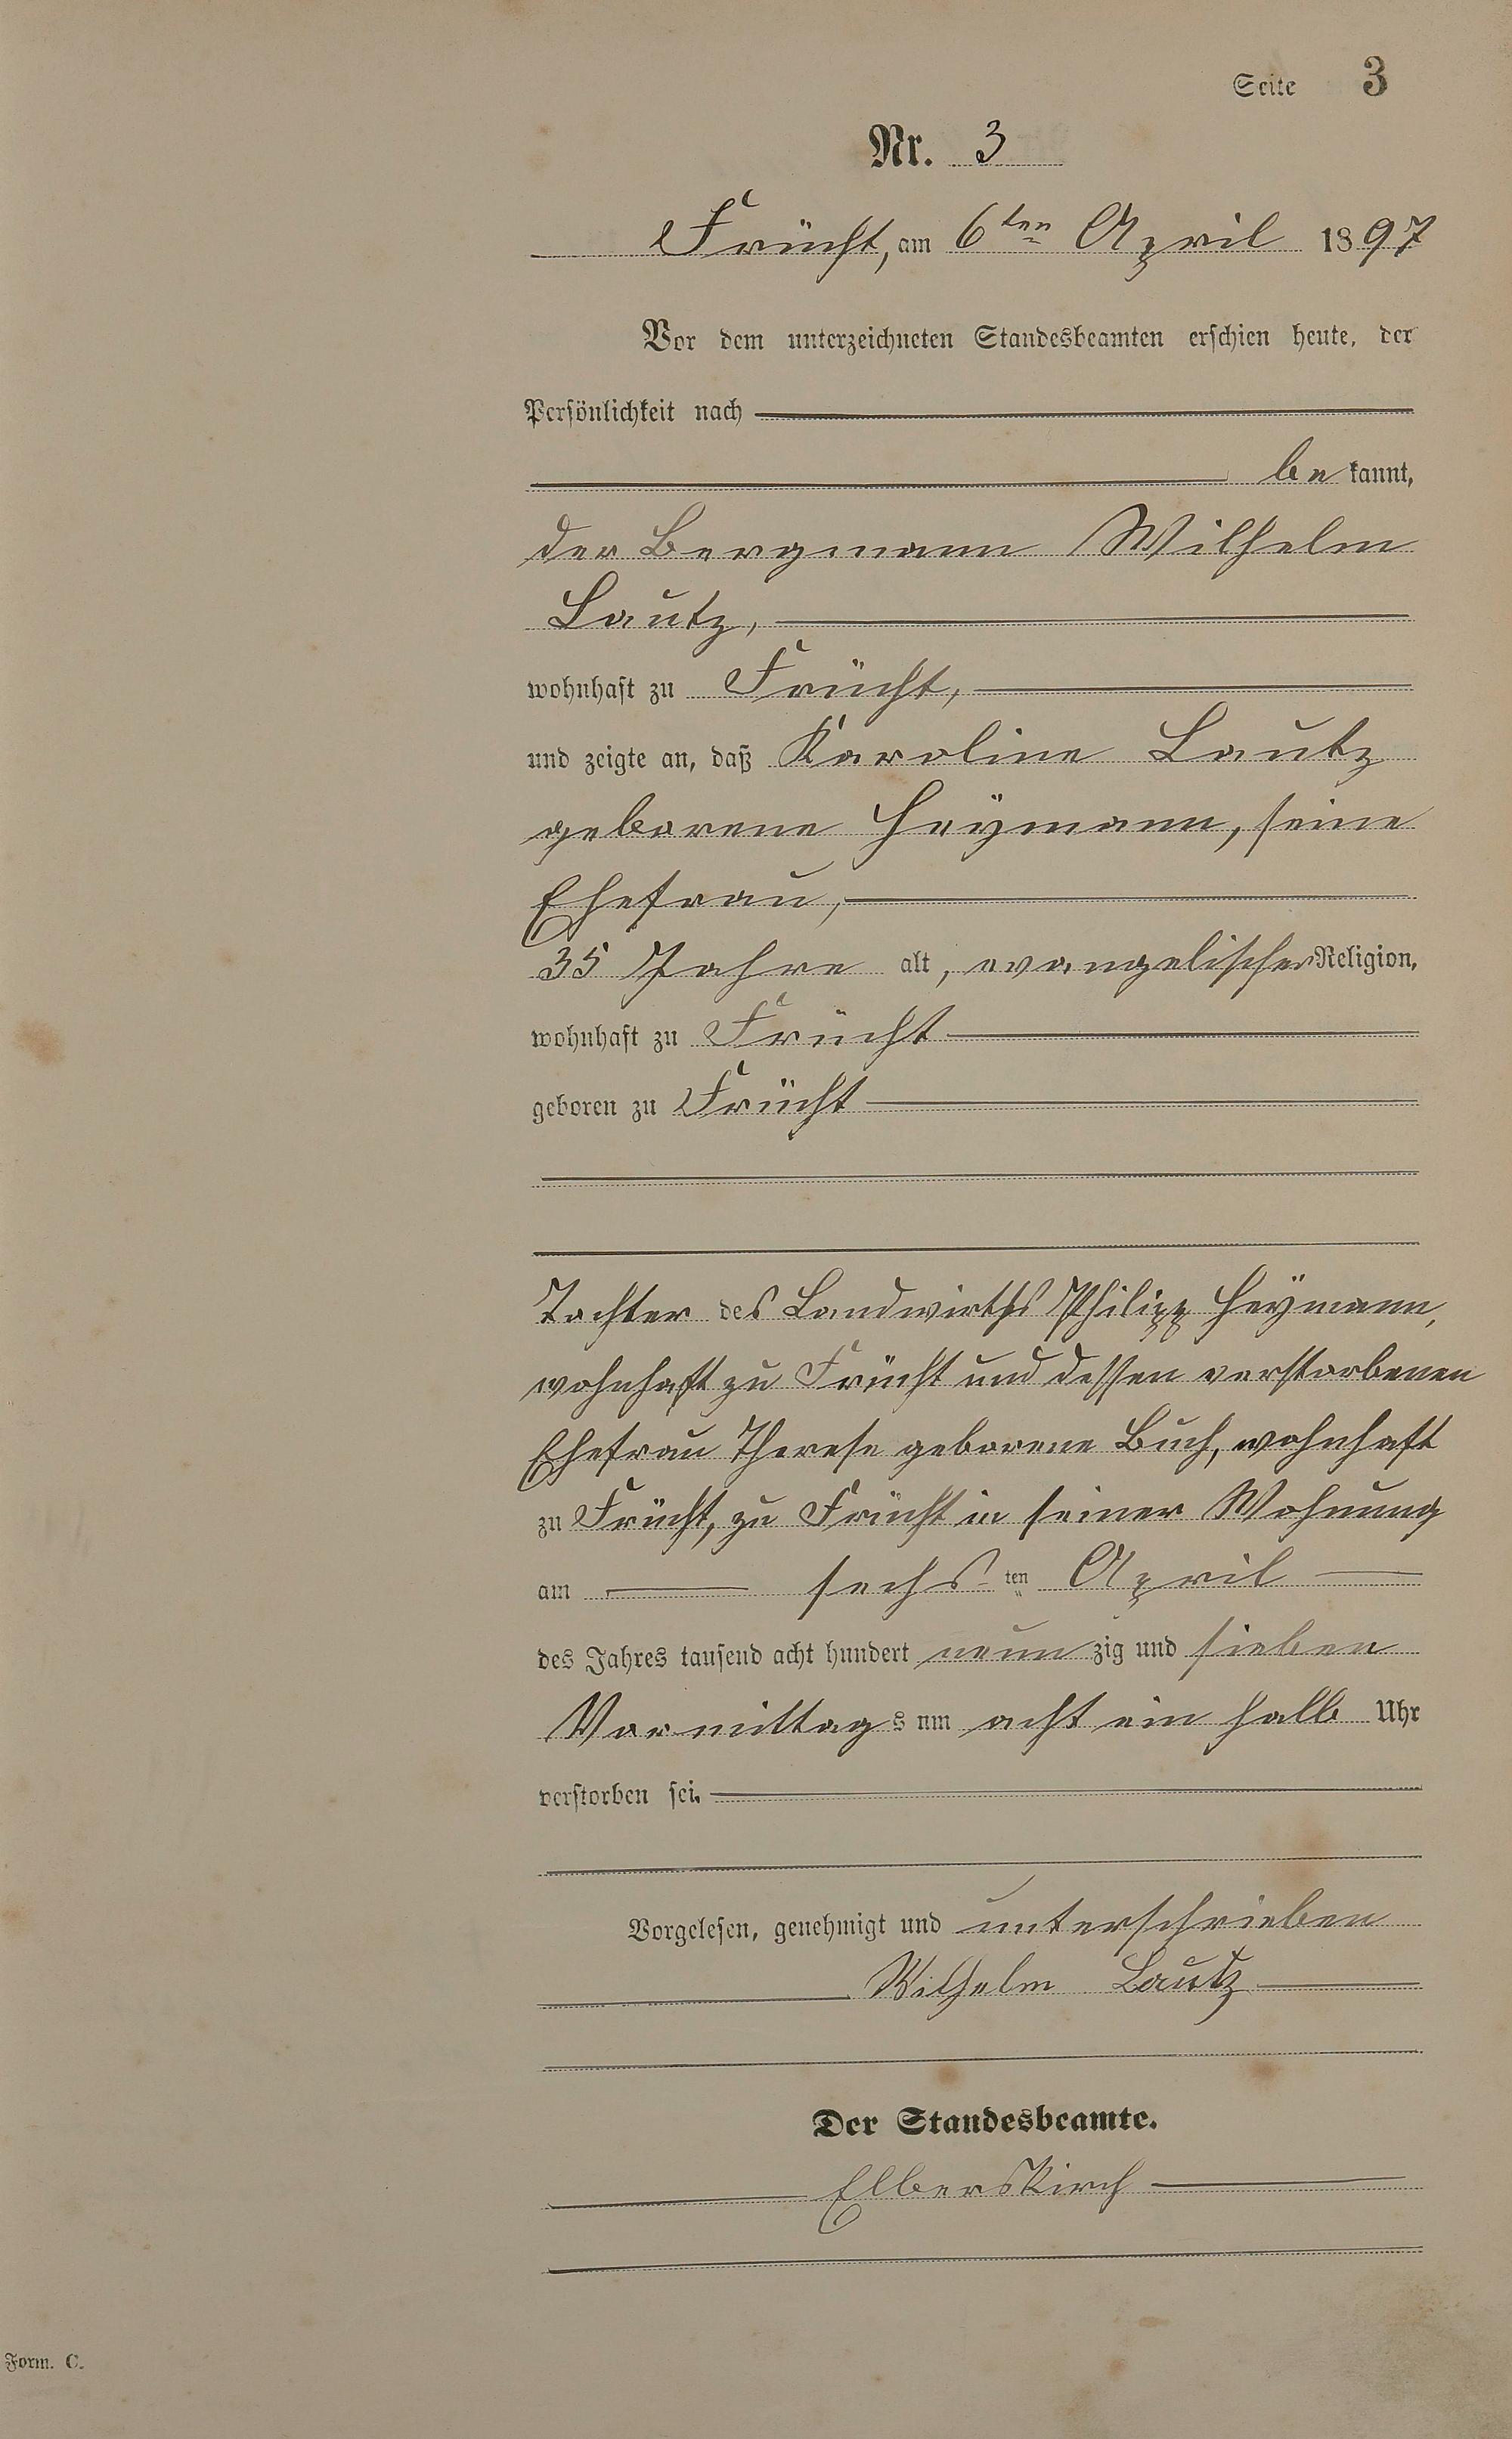 Seite 3
Nr. 3
Frücht, am 6ten April 1897
Vor dem unterzeichneten Standesbeamten erschien heute, der
Persönlichkeit nach
be kannt,
der Bergmann Wilhelm
Lautz,
wohnhaft zu Frücht,
und zeigte an, daß Karoline Lautz
geborene Heymann, seine
Ehefrau,
35 Jahre alt, evangelischer Religion,
wohnhaft zu Frücht
geboren zu Frücht
Tochter des Landwirths Philipp Heymann,
wohnhaft zu Frücht und dessen verstorbenen
Ehefrau Therese geborene Buch, wohnhaft
zu Frücht, zu Frücht in seiner Wohnung
am sechsten April
des Jahres tausend acht hundert neunzig und sieben
Vormittags um acht ein halb Uhr
verstorben sei.
Vorgelesen, genehmigt und unterschrieben
Wilhelm Lautz
Der Standesbeamte.
Elberskirch
Form. C.